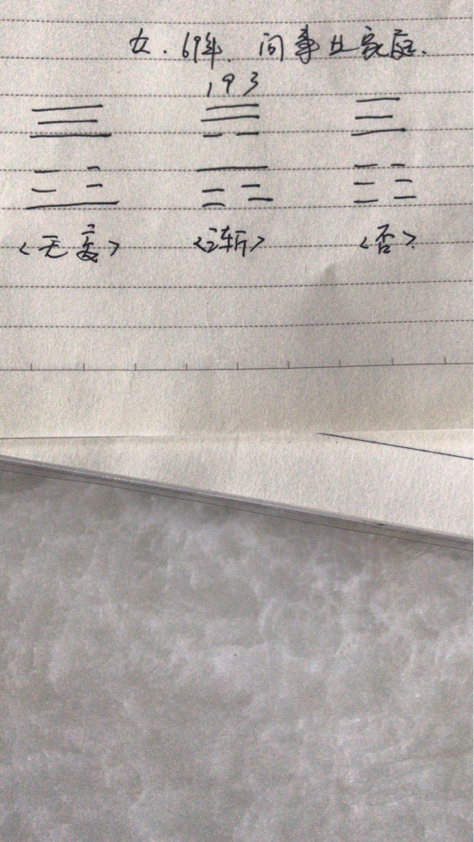 女.69年.问事业家庭.
193
<无妄> <渐> <否>